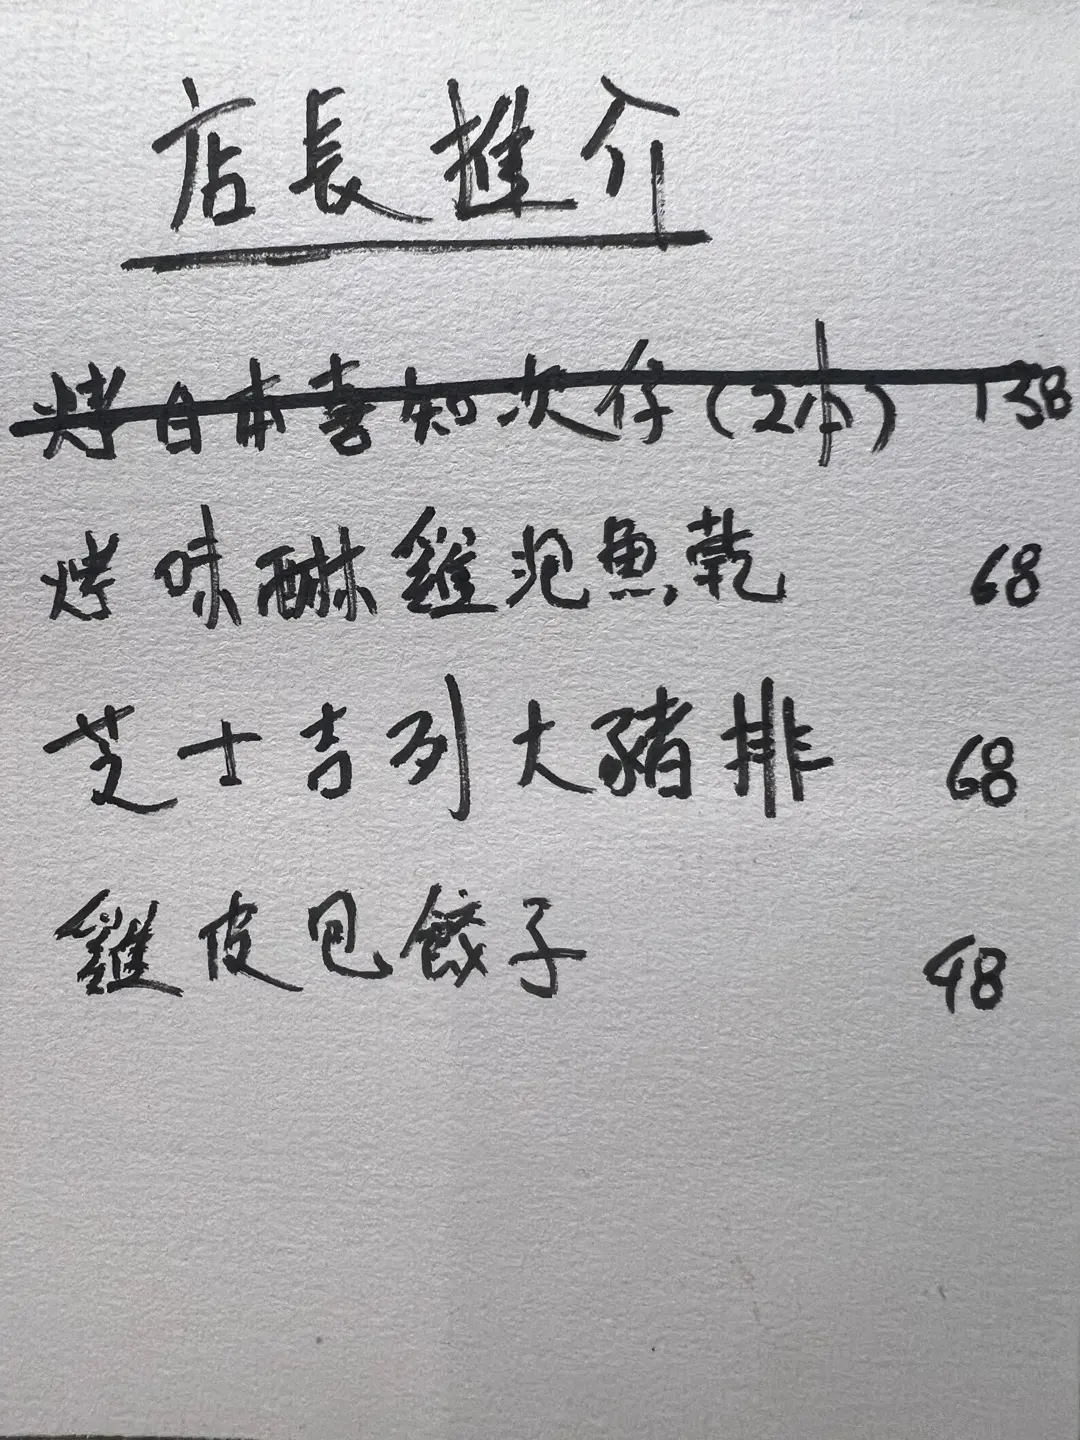 店長推介
烤日本喜知次仔(2本) 138
烤味醂雞泡魚乾 68
芝士吉列大豬排 68
雞皮包餃子 48